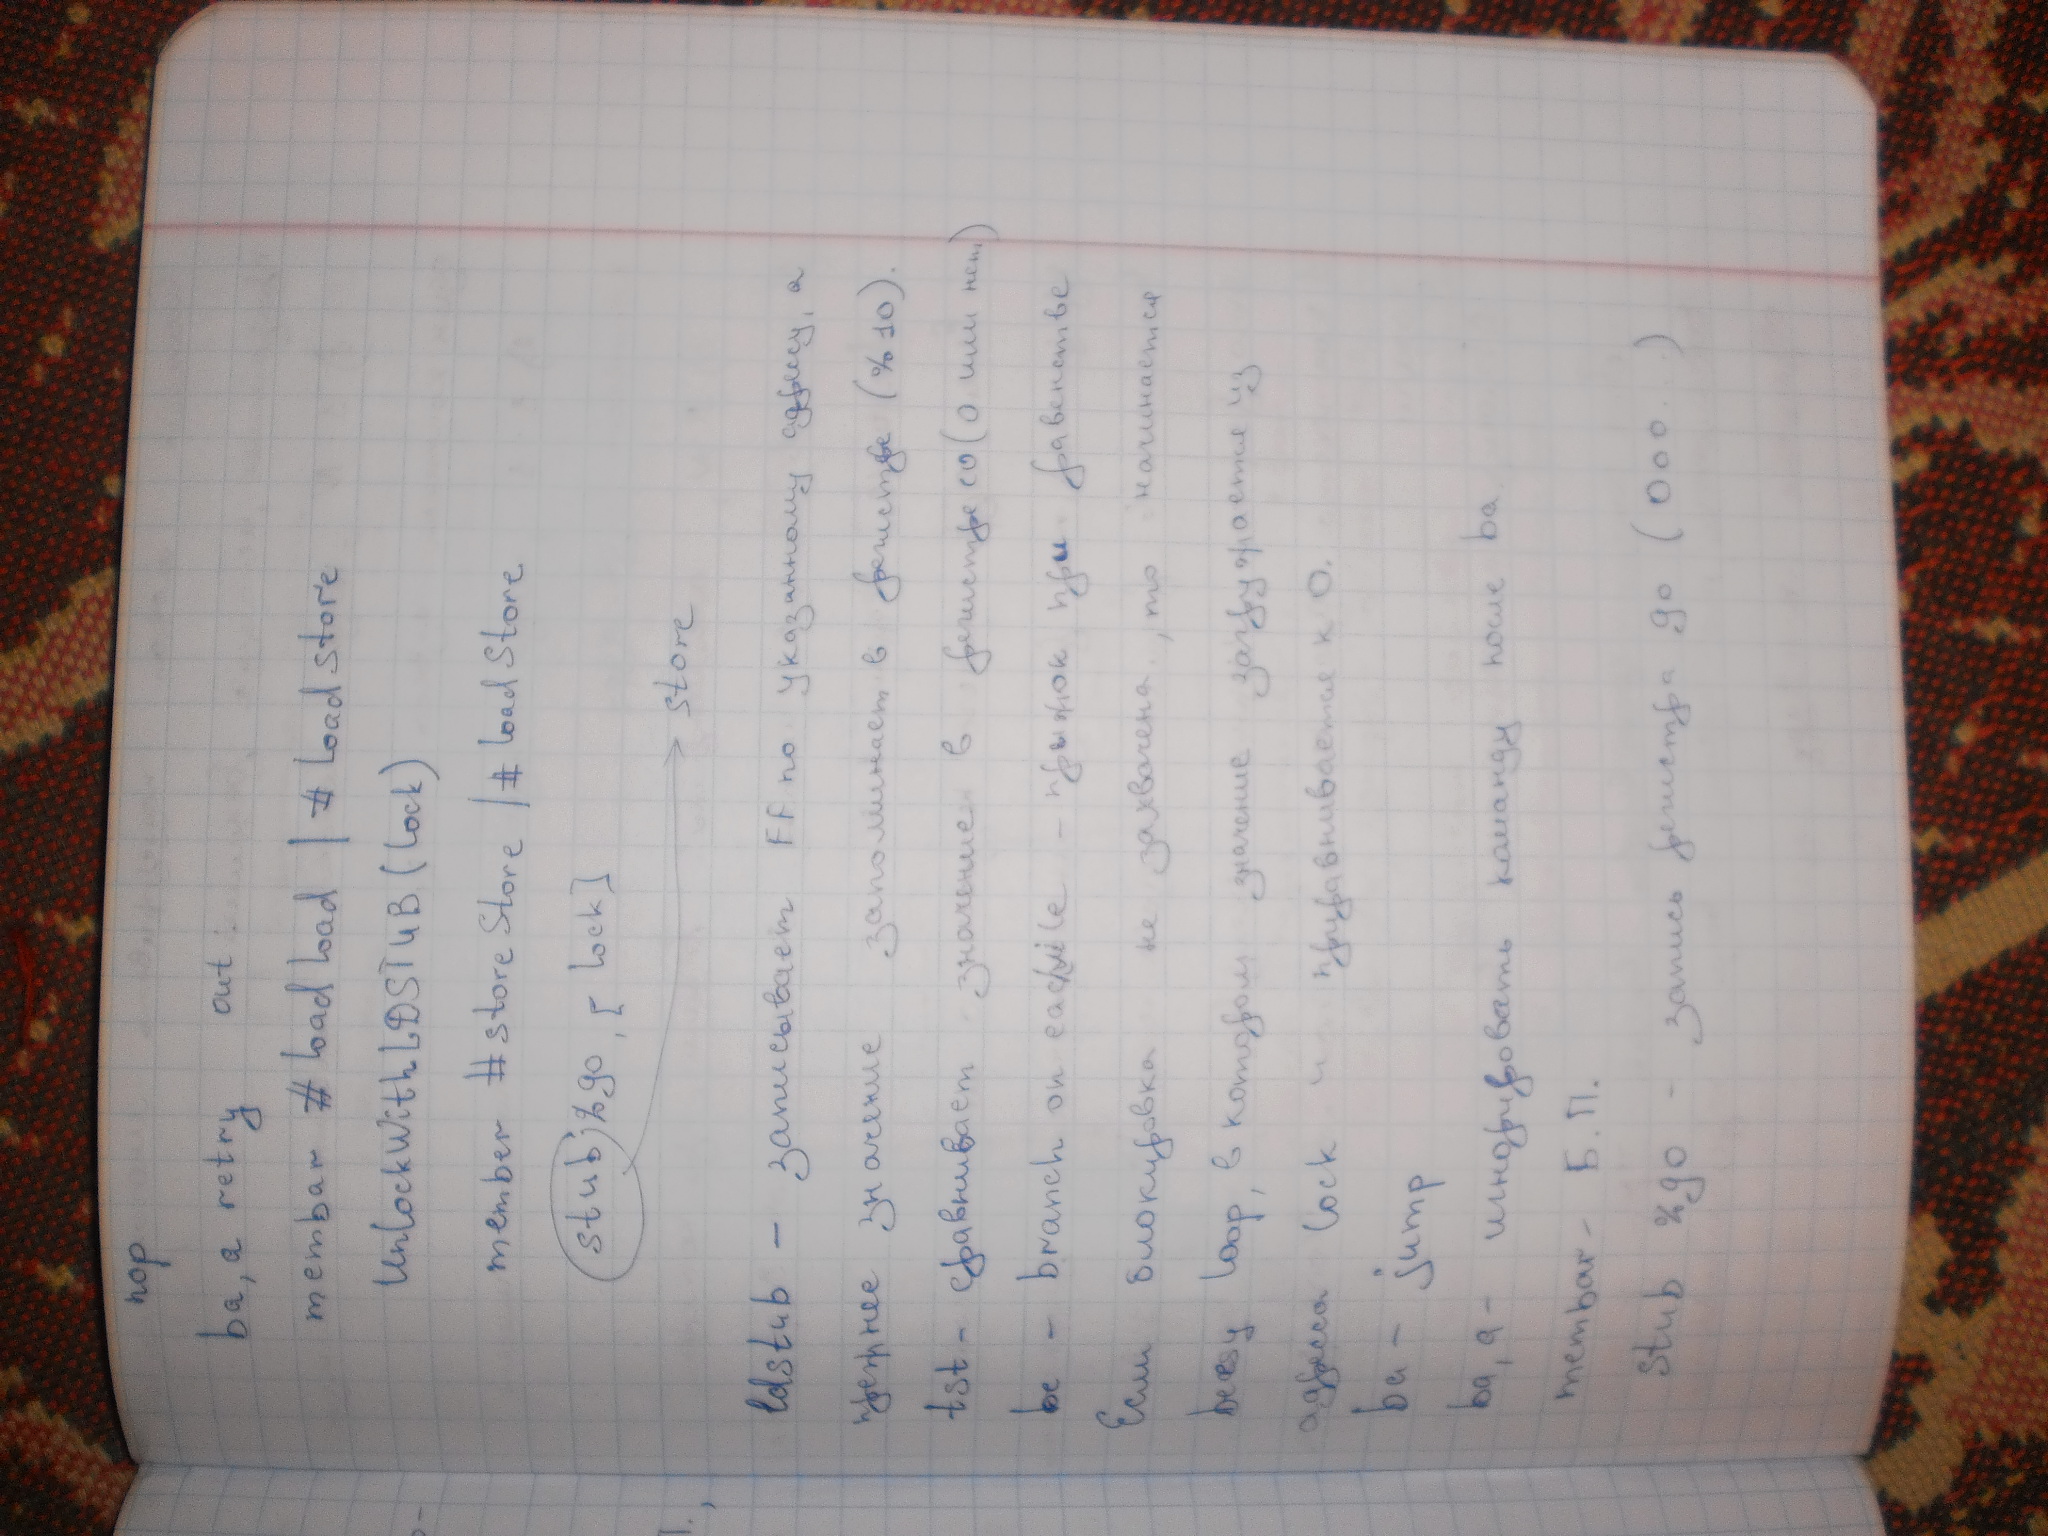 nop
ba, a retry out:
membar #LoadLoad | #LoadStore
UnlockWithLDSTUB(lock)
member #storeStore | #LoadStore
stub, %g0, [lock]
store
ldstub - записывает FF по указанному адресу, а
прежнее значение запоминает в регистре (%10).
tst - сравнивает значение в регистре с0 (0 или нет)
be - branch on - прыжок при равенстве
Если блокировка не захвачена, то начинается
busy loop, в котором значение загружается из
адреса lock и приравнивается к 0.
ba - jump
ba, a - игнорировать команду после ba.
membar - Б.П.
stub %g0 - запись регистра g0 (000..)